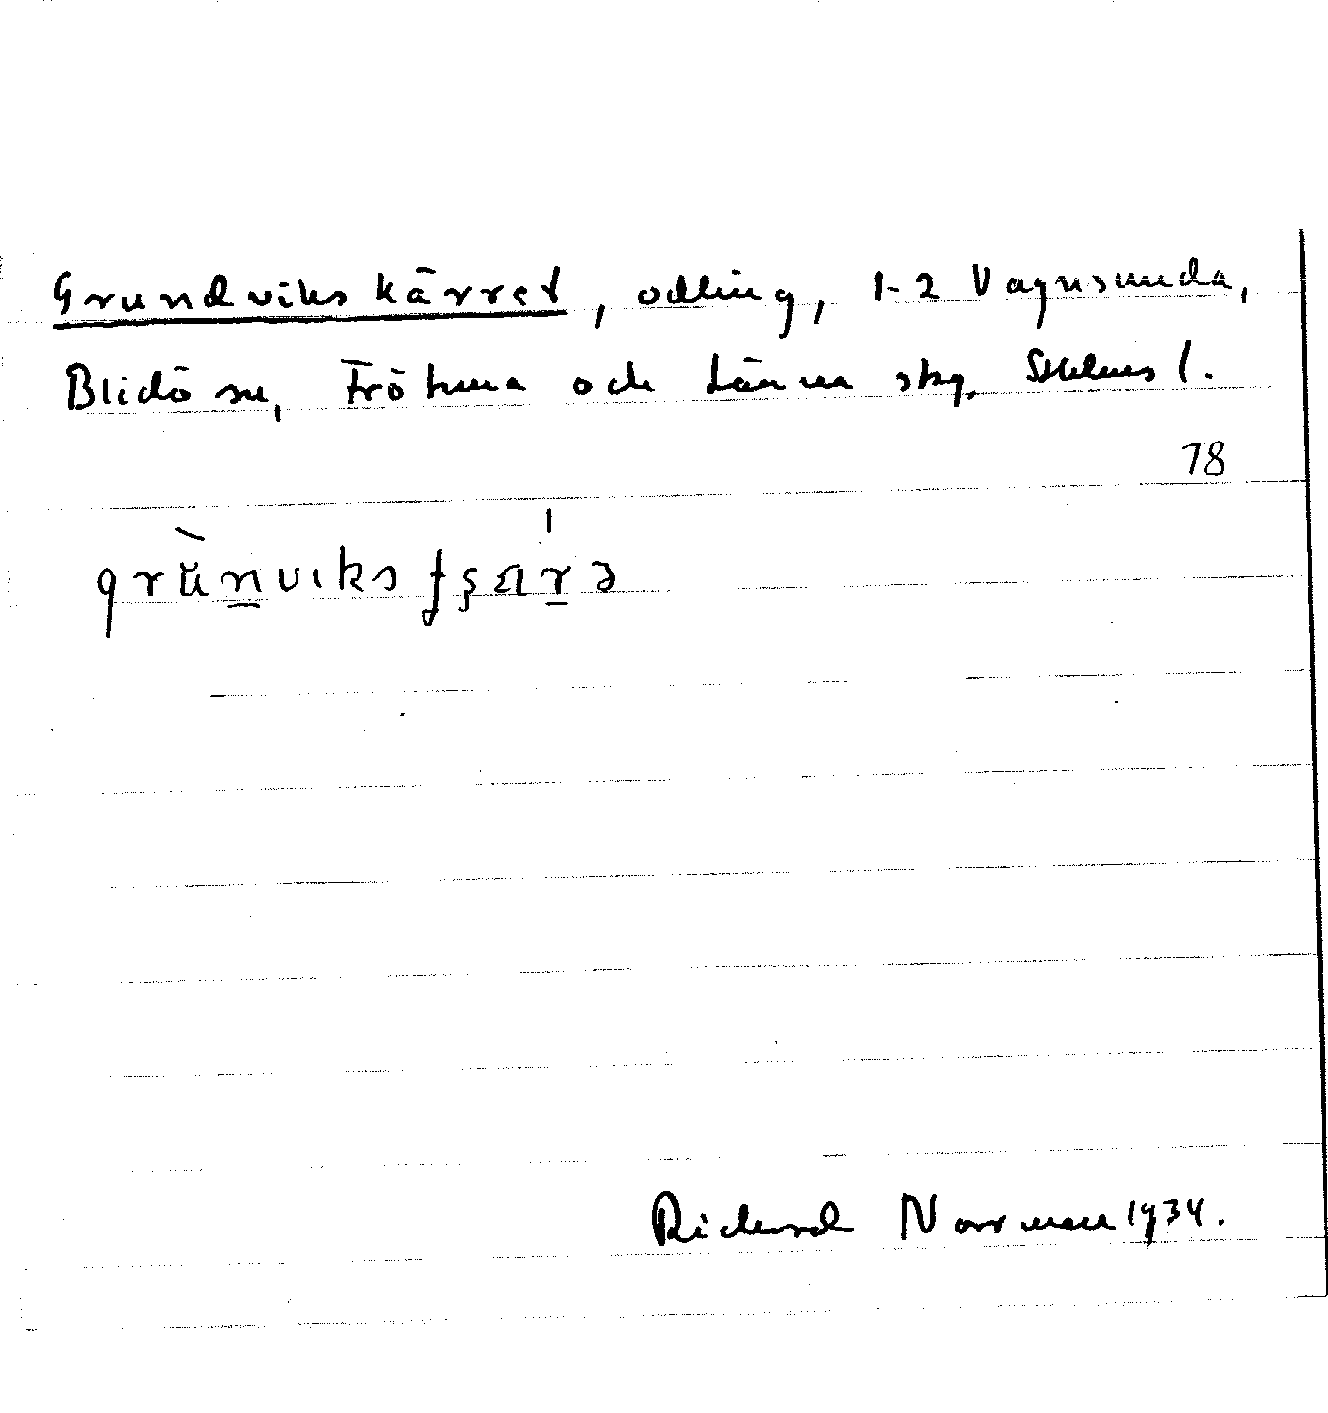 Grundvikskärret, odling, 1-2 Vagnsunda,
Blidö sn, Frötuna och Länna skg. Sthlms l.
78
grùnviksfʂärə
Rickard Norrman 1934.